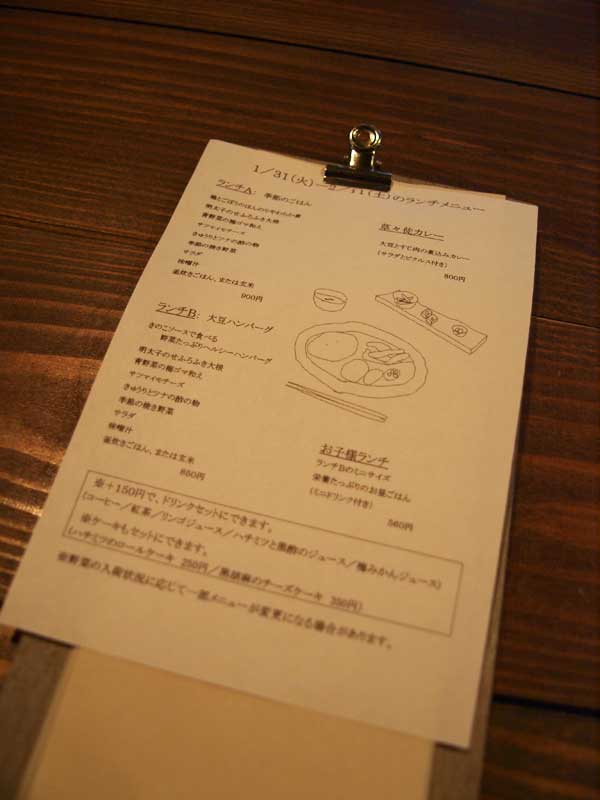 1/31(火)―2/11(土)のランチメニュー
ランチA: 季節のごはん
明太子のせふろふき大根
青野菜の梅ゴマ和え
サツマイモチーズ
きゅうりとツナの酢の物
季節の焼き野菜
サラダ
味噌汁
釜炊きごはん、または玄米
900円
ランチB: 大豆ハンバーグ
きのこソースで食べる
野菜たっぷりヘルシーハンバーグ
明太子のせふろふき大根
青野菜の梅ゴマ和え
サツマイモチーズ
きゅうりとツナの酢の物
季節の焼き野菜
サラダ
味噌汁
釜炊きごはん、または玄米
850円
菜々徒カレー
大豆とすじ肉の煮込みカレー
(サラダとピクルス付き)
800円
お子様ランチ
ランチBのミニサイズ
栄養たっぷりのお昼ごはん
(ミニドリンク付き)
560円
※+150円で、ドリンクセットにできます。
(コーヒー/紅茶/リンゴジュース/ハチミツと黒酢のジュース/梅みかんジュース)
※ケーキもセットにできます。
(ハチミツのロールケーキ 250円/黒胡麻のチーズケーキ 350円)
※野菜の入荷状況に応じて一部メニューが変更になる場合があります。